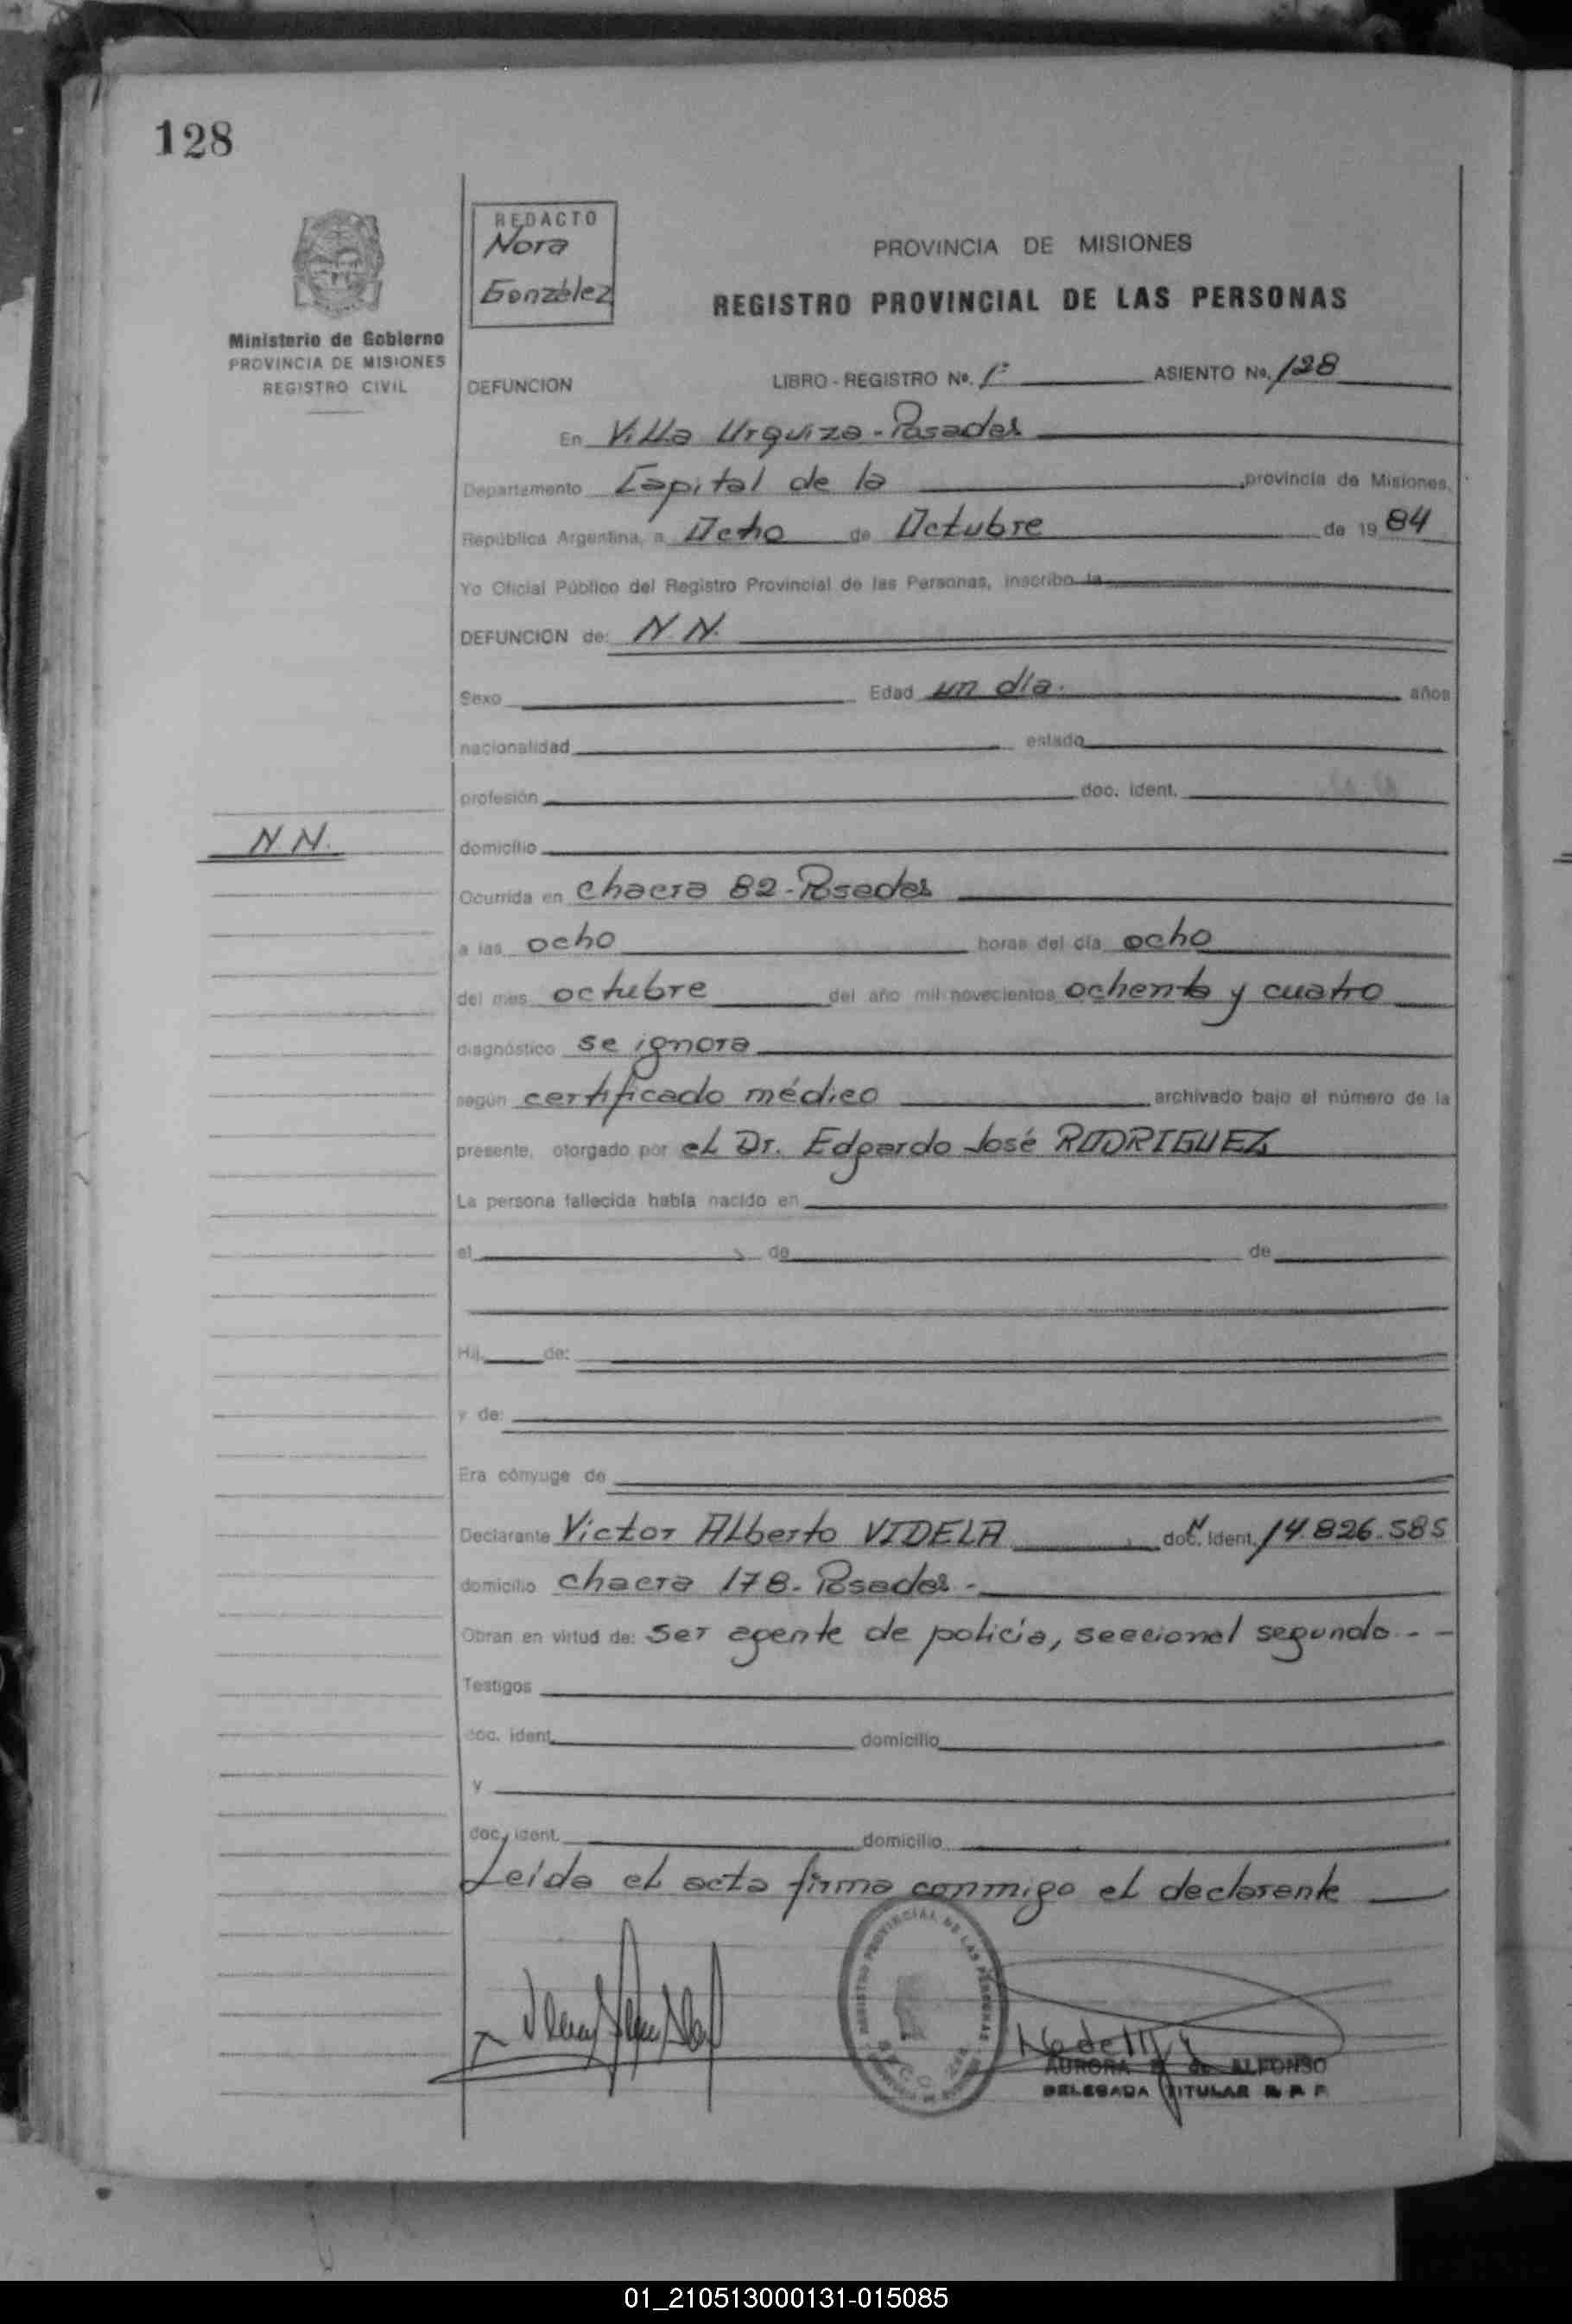 128
REDACTO
Nora
González
Ministerio de Gobierno
PROVINCIA DE MISIONES
REGISTRO CIVIL
PROVINCIA DE MISIONES
REGISTRO PROVINCIAL DE LAS PERSONAS
DEFUNCION LIBRO - REGISTRO No. 1º ASIENTO No. 128
En Villa Urquiza - Posadas
Departamento Capital de la provincia de Misiones,
República Argentina, a Ocho de Octubre de 1984
Yo Oficial Público del Registro Provincial de las Personas, inscribo la
DEFUNCION de: N.N.
Sexo Edad un día. años
nacionalidad estado
profesión doc. ident.
N.N.
domicilio
Ocurrida en chacra 82 - Posadas
a las ocho horas del día ocho
del mes octubre del año mil novecientos ochenta y cuatro
diagnóstico se ignora
según certificado médico archivado bajo el número de la
presente, otorgado por el Dr. Edgardo José RODRIGUEZ
La persona fallecida había nacido en
el de de
Hij de:
y de:
Era cónyuge de
Declarante Victor Alberto VIDELA doc. Ident. 14.826.585
domicilio chacra 178 - Posadas -
Obran en virtud de: ser agente de policía, seccional segunda - -
Testigos
doc. ident. domicilio
y
doc. ident. domicilio
Leida el acta firma conmigo el declarante
REGISTRO PROVINCIAL DE LAS PERSONAS
AURORA de ALFONSO
DELEGADA TITULAR R. P. P.
01_210513000131-015085